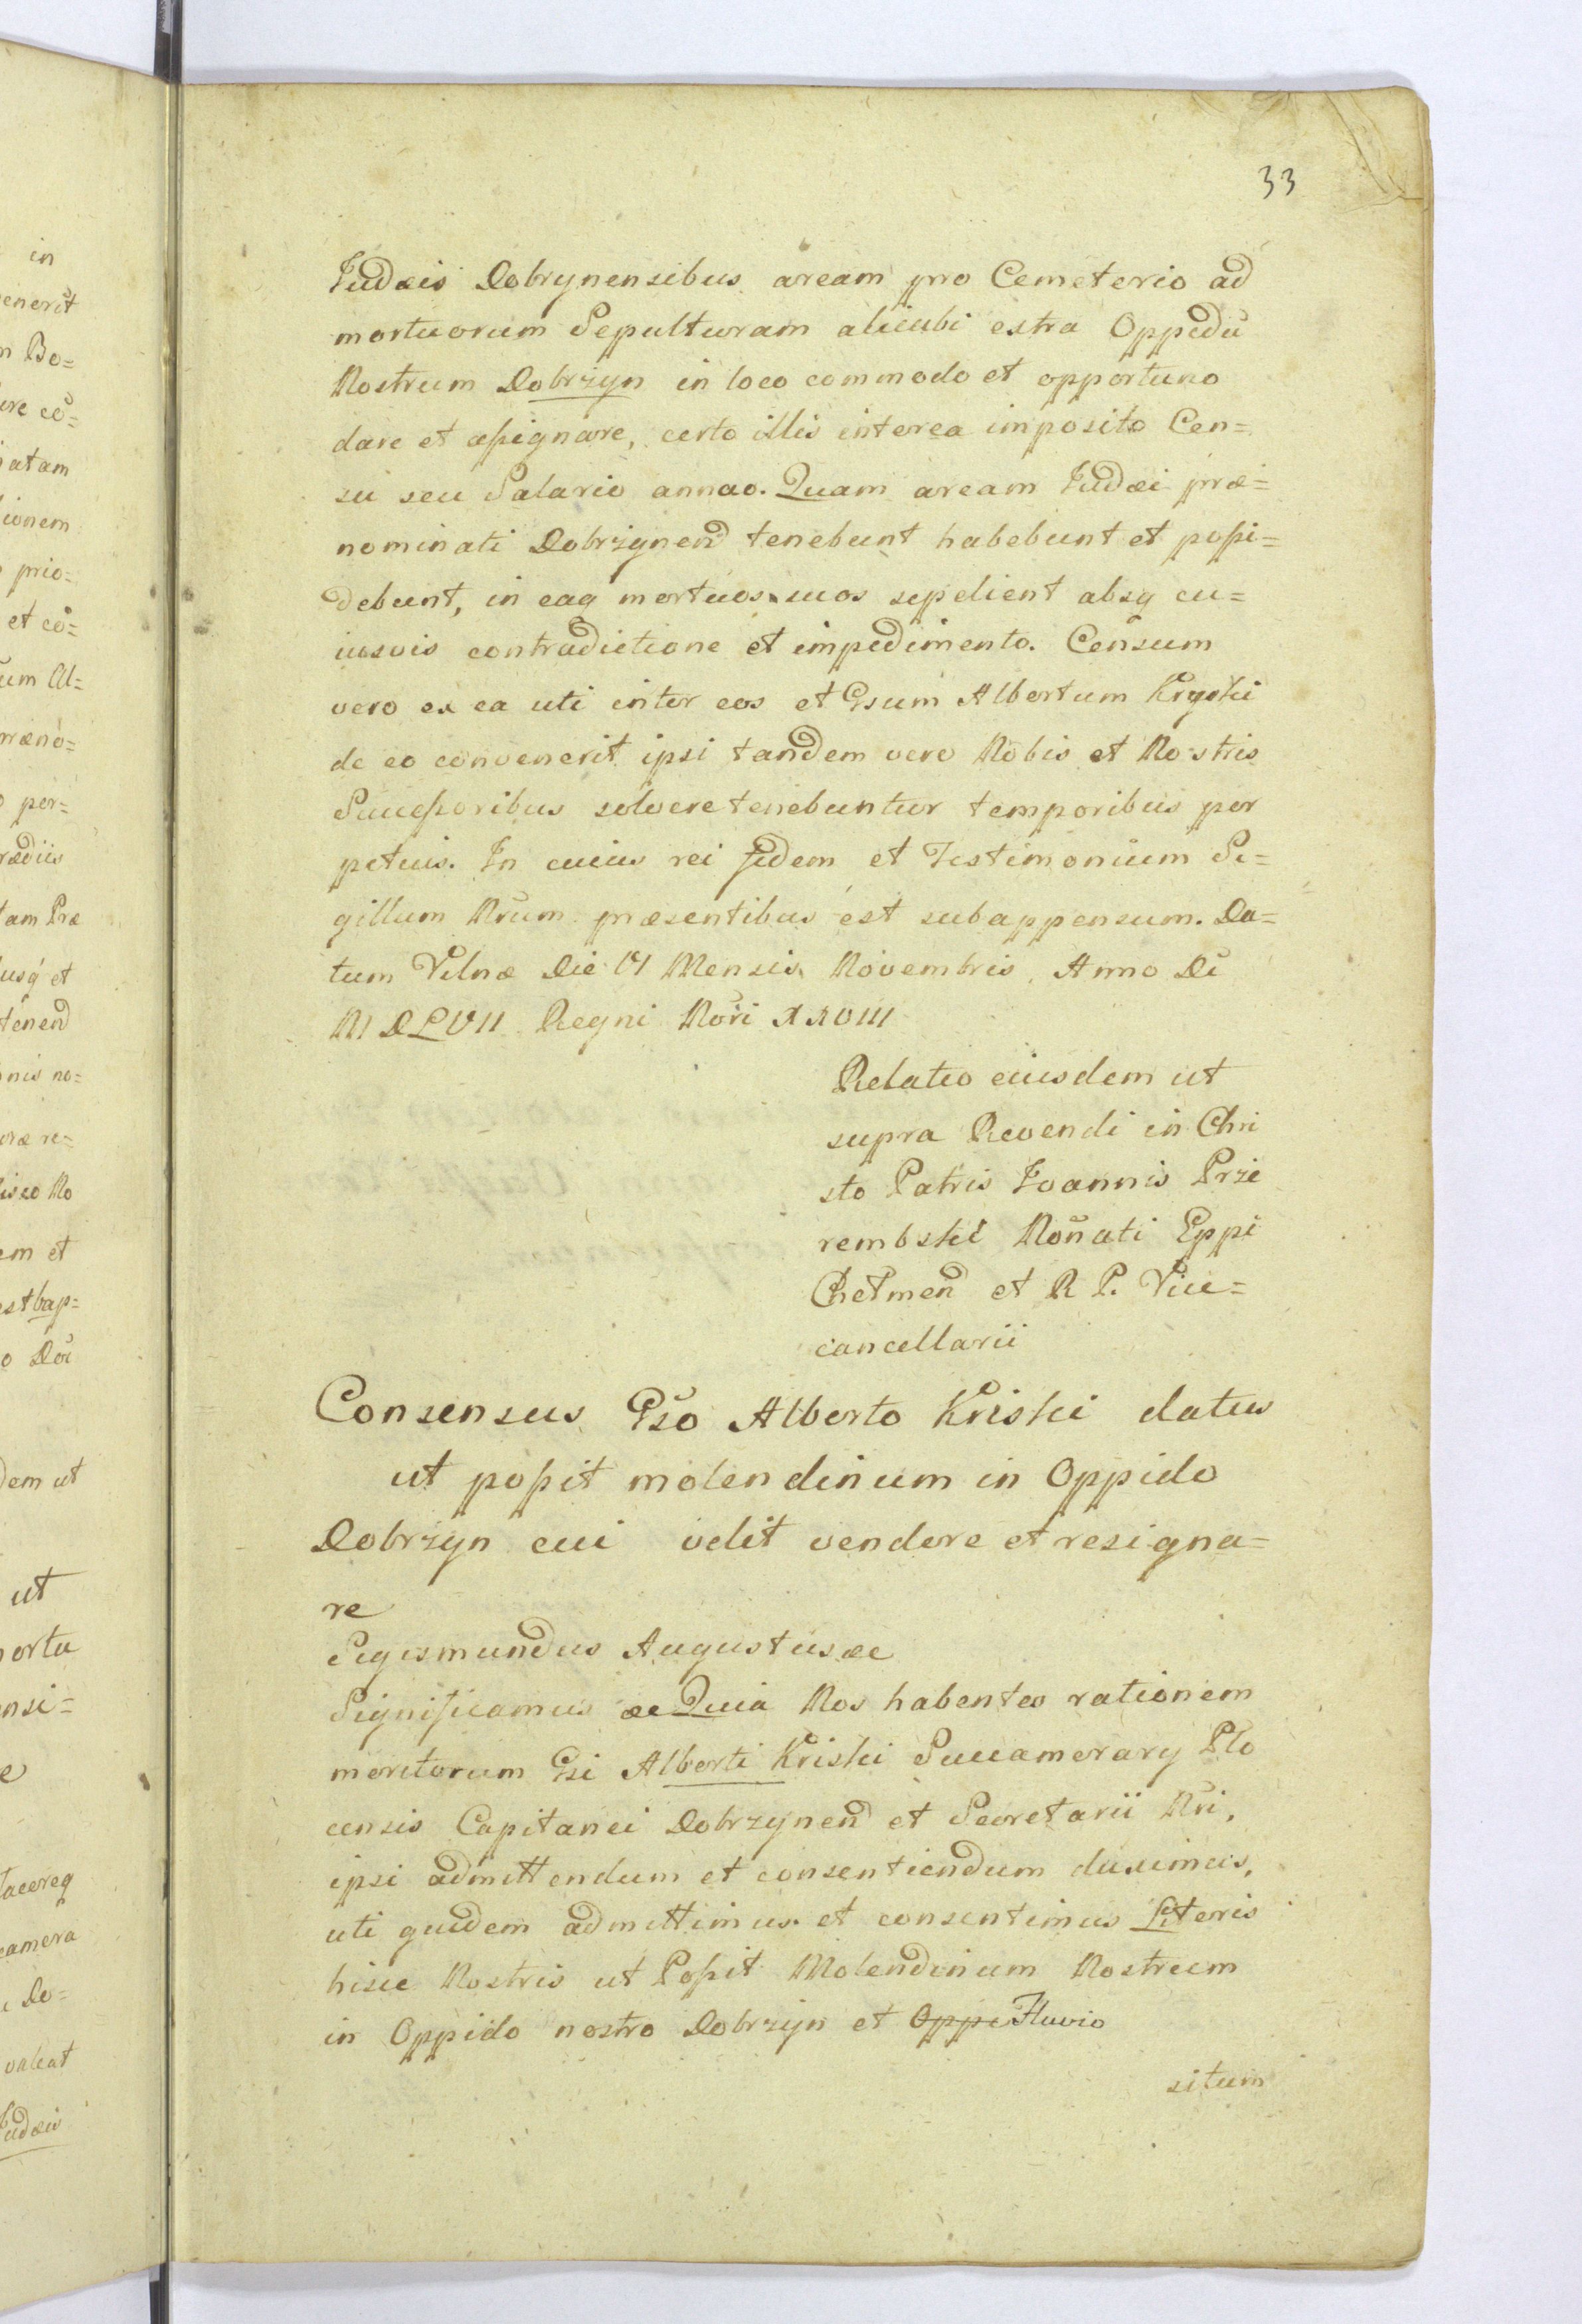 33
Iudæis Dobrynensibus aream pro Cemeterio ad
mortuorum Sepulturam alicubi extra Oppidũ
Nostrum Dobrzyn in loco commodo et opportuno
dare et aßignare, certo illis interea imposito Cen=
su seu Salario annao. Quam aream Iudæi præ=
nominati Dobrzynen̄ tenebunt habebunt et poßi=
debunt, in eaq mortuos suos sepelient absq cu=
iusvis contradictione et impedimento. Censum
vero ex ea uti inter eos et Gsum Albertum Kryski
de eo convenerit ipsi tandem vero Nobis et Nostris
Succeßoribus solvere tenebuntur temporibus per
petuis. In cuius rei fidem et Testimonium Si=
gillum Nr̃um præsentibus est subappensum. Da=
tum Vilnæ Die VI Mensis Novembris Anno Dĩ
M D L VII Regni Nõri XXVIII
Relatio eiusdem ut
supra Revendi in Chri
sto Patris Ioannis Prze
rembski Noñati Eppi
Chelmen̄ et R P. Vice=
cancellarii
Consensus Gs̃o Alberto Kriski datus
ut poßit molendinum in Oppido
Dobrzyn cui velit vendere et resigna=
re
Sigismundus Augustus æc
Significamus æc Quia Nos habentes rationem
meritorum Gsi Alberti Kriski Succamerary Plo
censis Capitanei Dobrzynen̄ et Secretarii Nr̃i,
ipsi admittendum et consentiendum duximus,
uti quidem admittimus et consentimus Literis
hisce Nostris ut Poßit Molendinum Nostrum
in Oppido nostro Dobrzyn et Oppi Fluvio
situm
in
enerit
Bo=
atam
ionem
prio=
et cõ=
per=
rædiis
tam Præ
usq et
tenen̄
re=
em et
dem ut
ut
ortu
nsi=
camera
Do=
valeat
Iudæis